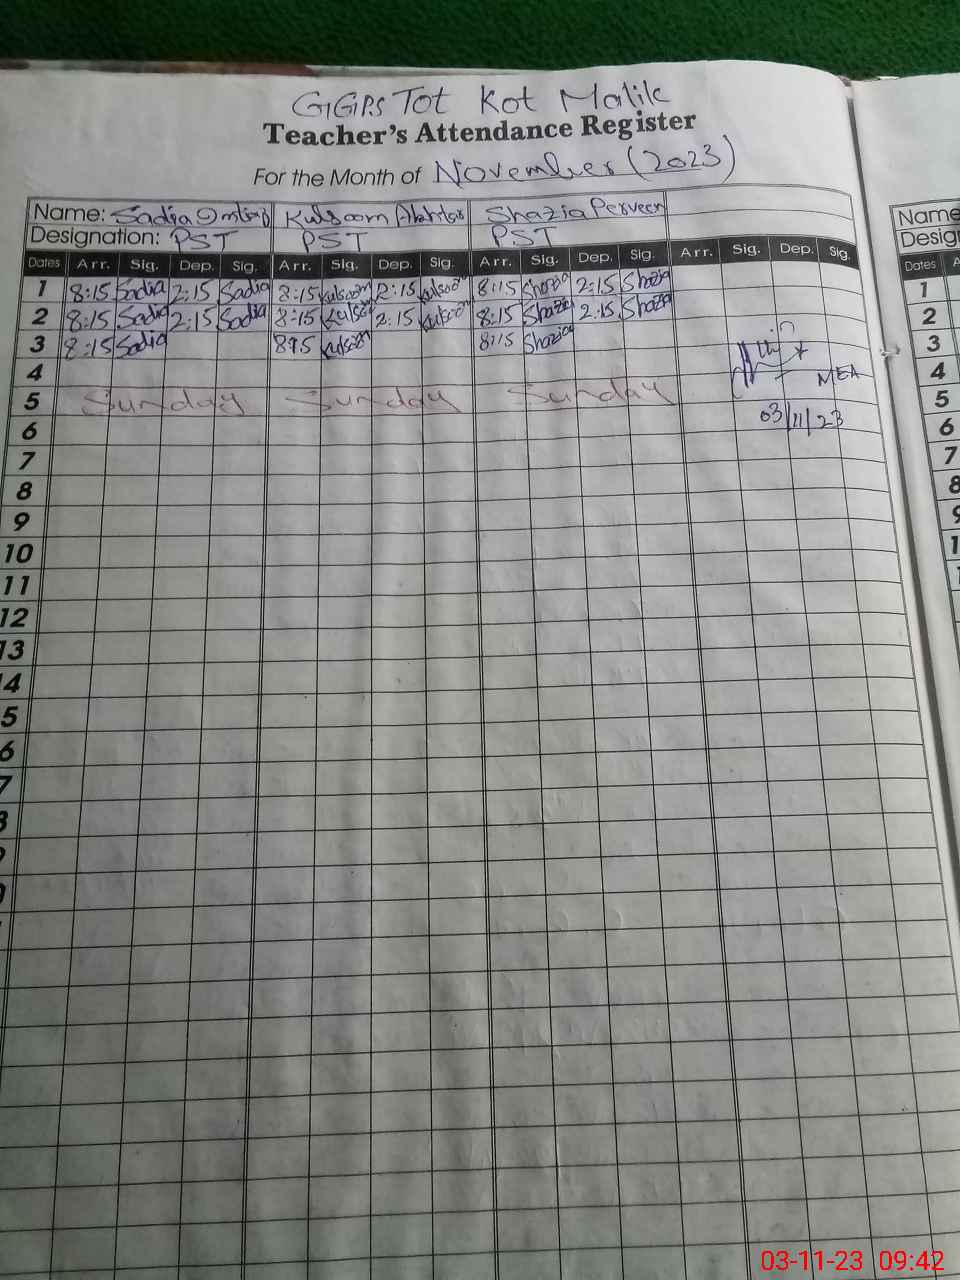 GGPS Tot Kot Malik
Teacher's Attendance Register
For the Month of November (2023)
Name: Sadia Imtiaz Kulsoom Akhtar Shazia Perveen
Designation: PST PST PST
Dates Arr. Sig. Dep. Sig. Arr. Sig. Dep. Sig. Arr. Sig. Dep. Sig. Arr. Sig. Dep. Sig.
1 8:15 Sadia 2:15 Sadia 8:15 Kulsoom 2:15 Kulsoom 8:15 Shazia 2:15 Shazia
2 8:15 Sadia 2:15 Sadia 8:15 Kulsoom 2:15 Kulsoom 8:15 Shazia 2:15 Shazia
3 8:15 Sadia 815 Kulsoom 8:15 Shazia
4 MEA
5 Sunday Sunday Sunday
03/11/23
6
7
8
9
10
11
12
13
14
5
6
7
8
9
0
Name
Desig
Dates A
1
2
3
4
5
6
7
8
9
1
1
03-11-23 09:42